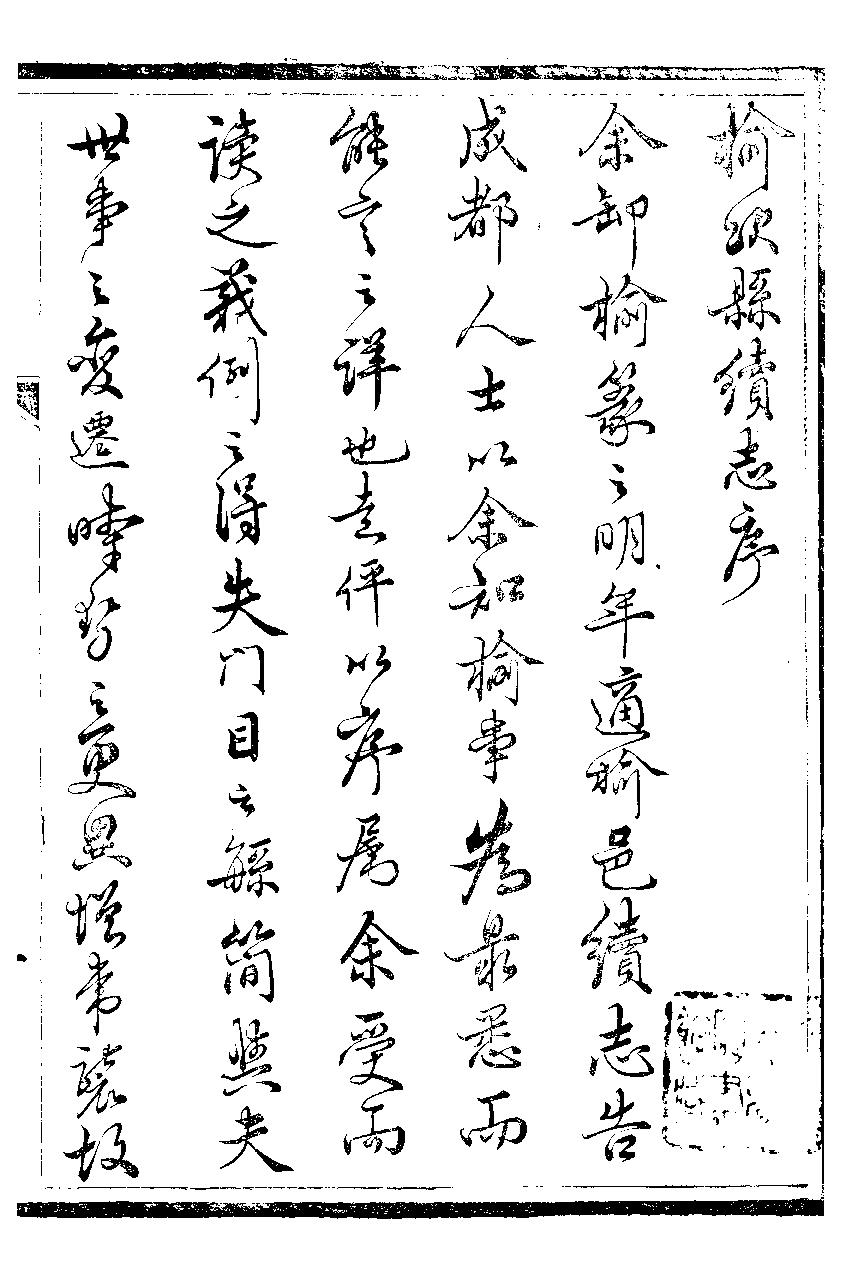 榆次縣續志序
余卸榆篆之明年適榆邑續志告
成都人士以余知榆事為最悉而
能言之詳也走伻以序属余受而
读之義例之得失門目之緐簡與夫
世事之变遷時势之更異增常襲故